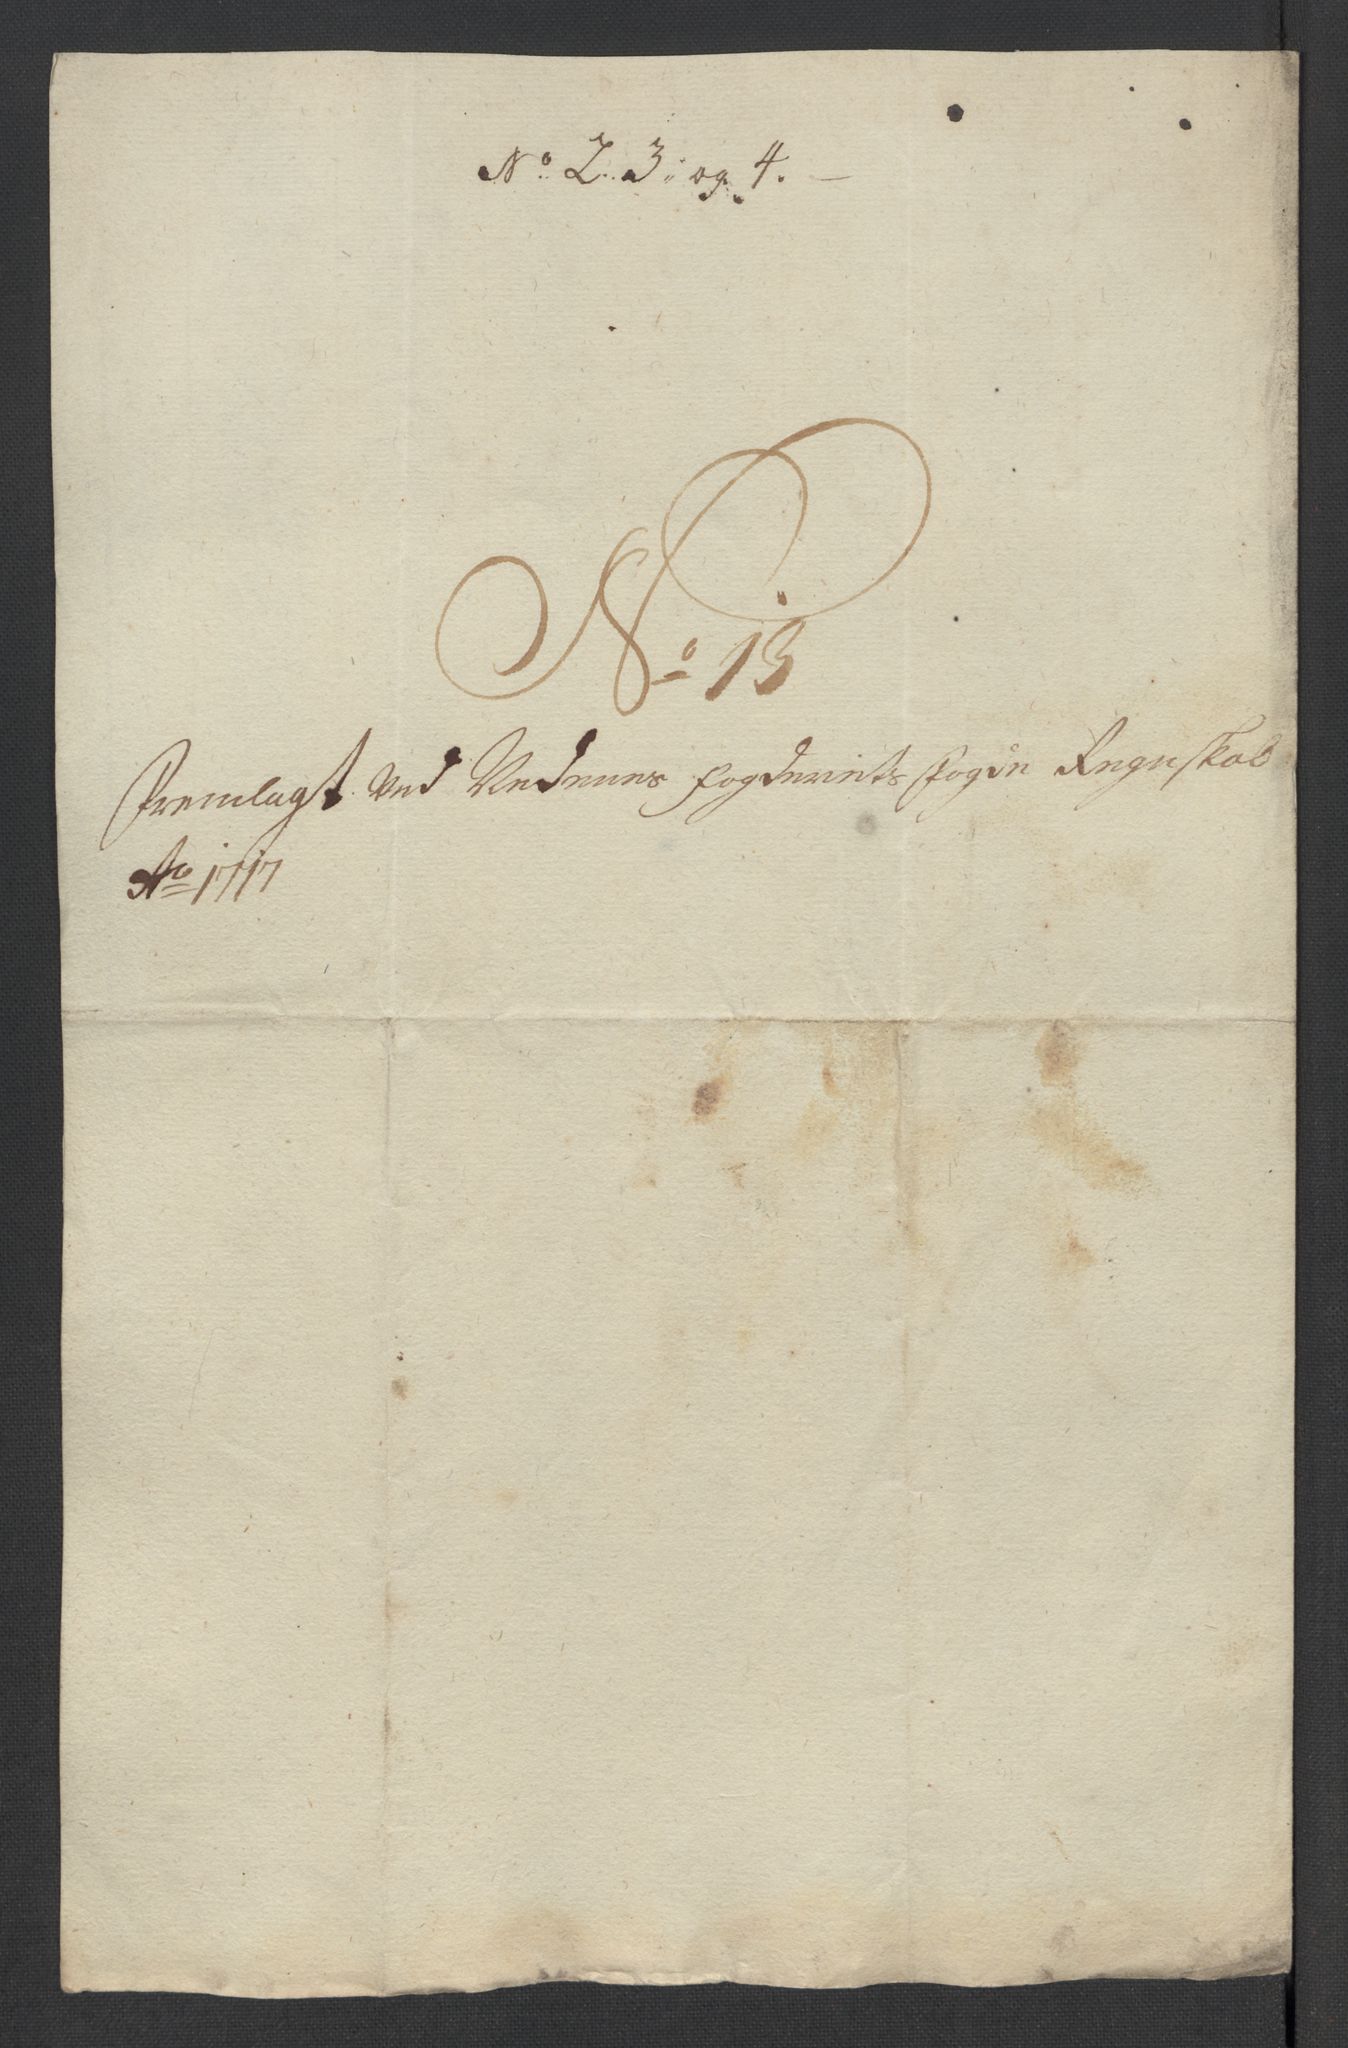 No. 2. 3. og 4. —
No 13
Fremlagt Ved Nedenes fogderiets fogde Regnskab
Ao 1717